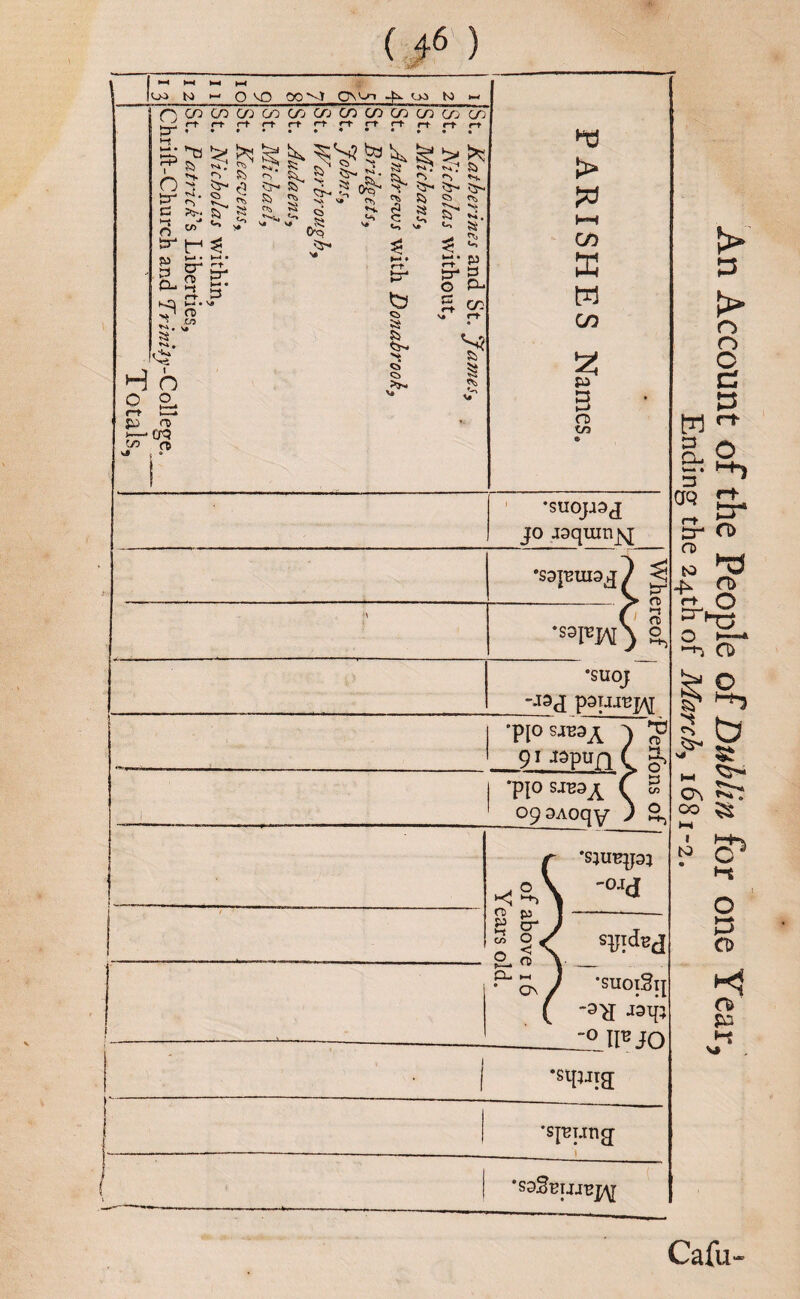 ( 46 )
An Account of the People of Dublin for one Year,
Ending the 24th of March, 1681-2.
PARISHES Names.
Number of
Perſons.
Whereof
Males.
Females.
Married Per-
ſons.
Perſons of
Under 16
Years old.
Above 60
Years old.
of above 16
Years old.
Pro-
teſtants.
Papiſts
Of all o-
ther Re-
ligions.
Births.
Burials.
Marriages.
1 St. Katherines and St. James,
2 St. Nicholas without,
3 St. Michans,
4 St. Andrews with Donabrook,
5 St. Bridgets,
6 St. Johns,
7 St. Warbrough,
8 St. Audaens,
9 St. Michael,
10 St. Keavens,
11 St. Nicholas within,
12 St. Patrick's Liberties,
13 Chriſt-Church and Trinity-College.
Totals,
Caſu-